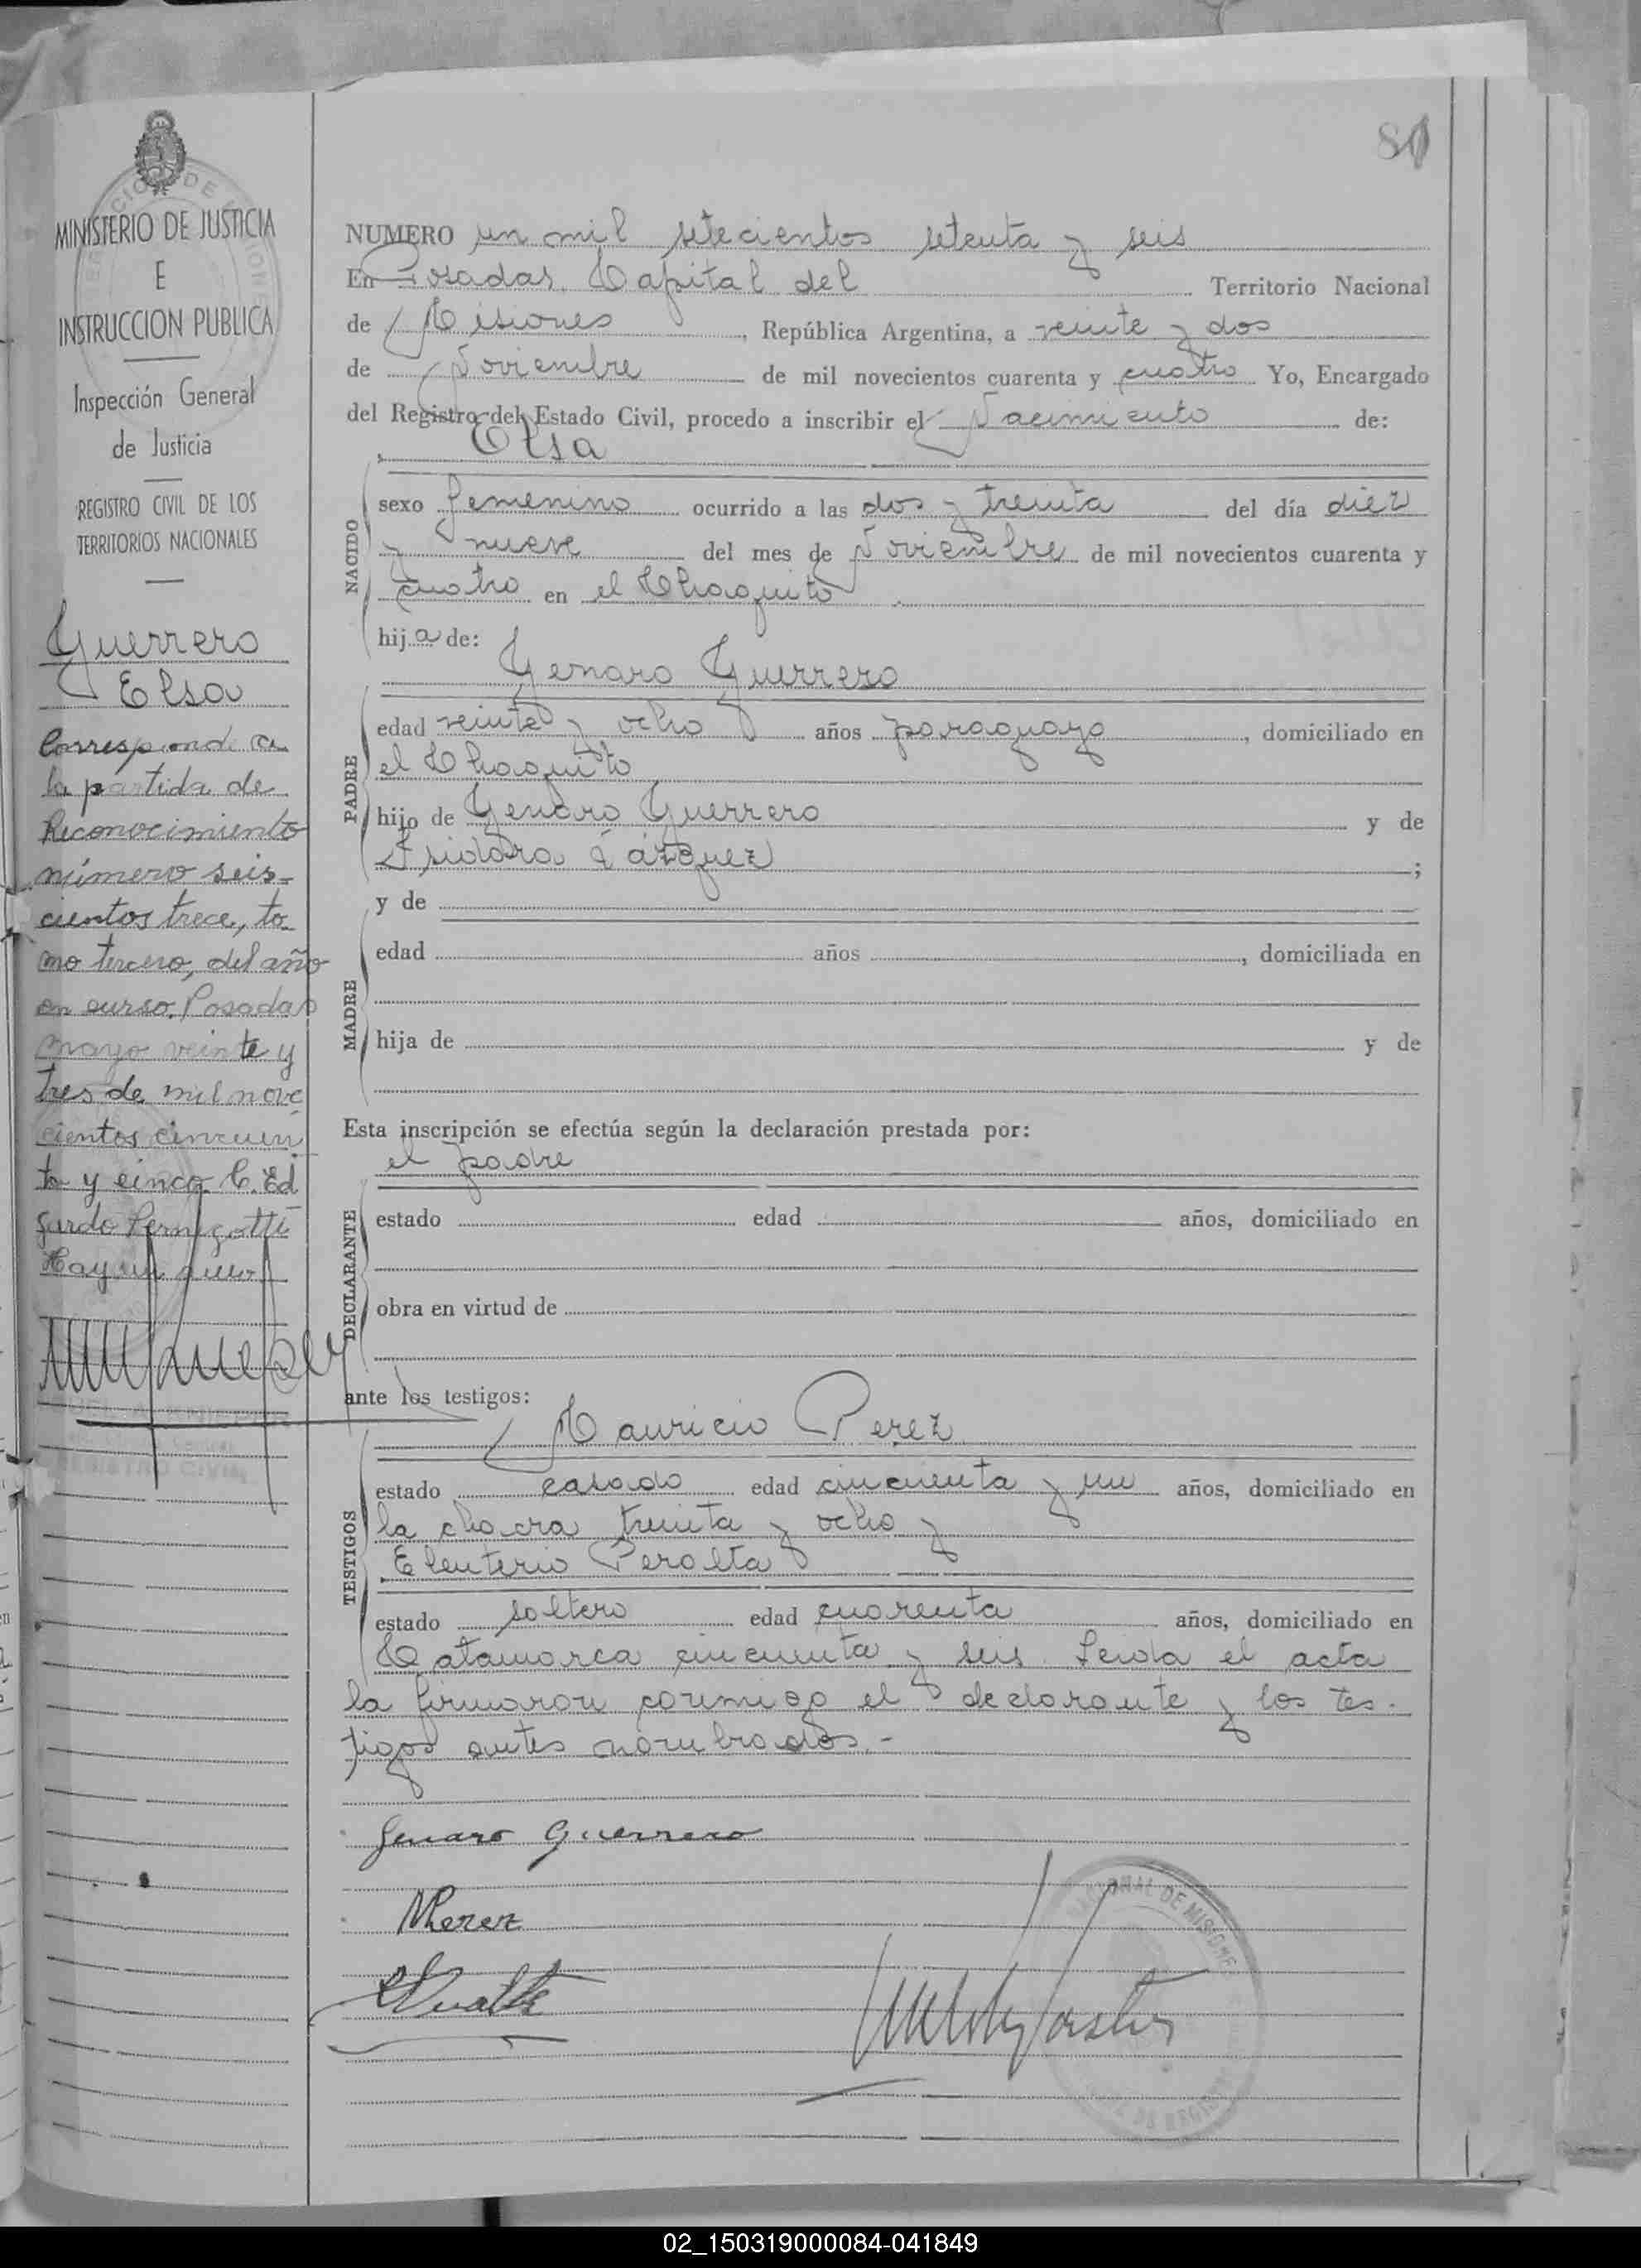 81
MINISTERIO DE JUSTICIA
E
INSTRUCCION PUBLICA
Inspección General
de Justicia
REGISTRO CIVIL DE LOS
TERRITORIOS NACIONALES
Guerrero
Elsa
Corresponde a
la partida de
Reconocimiento
número seis-
cientos trece, to-
mo tercero, del año
en curso. Posadas
mayo veinte y
tres de mil nove
cientos cincuen
ta y cinco. C. Ed
gardo Pernigotti
Hay un
NUMERO un mil setecientos setenta y seis
En Posadas. Capital del Territorio Nacional
de Misiones, República Argentina, a veinte y dos
de Noviembre de mil novecientos cuarenta y cuatro Yo, Encargado
del Registro del Estado Civil, procedo a inscribir el Nacimiento de:
Elsa
NACIDO
sexo femenino ocurrido a las dos y treinta del día diez
y nueve del mes de Noviembre de mil novecientos cuarenta y
cuatro en el Chaquito
hija de:
Genaro Guerrero
PADRE
edad veinte y ocho años paraguayo, domiciliado en
el Chaquito
hijo de Genaro Guerrero y de
Isidora Vázquez ;
y de
MADRE
edad años , domiciliada en
hija de y de
Esta inscripción se efectúa según la declaración prestada por:
el padre
DECLARANTE
estado edad años, domiciliado en
obra en virtud de
ante los testigos:
Mauricio Perez
TESTIGOS
estado casado edad cincuenta y un años, domiciliado en
la chacra treinta y ocho y
Eleuterio Peralta
estado soltero edad cuarenta años, domiciliado en
Catamarca cincuenta y seis. Leida el acta
la firmaron conmigo el declarante y los tes-
tigos antes nombrados.-
Genaro Guerrero
MPerez
02_150319000084-041849